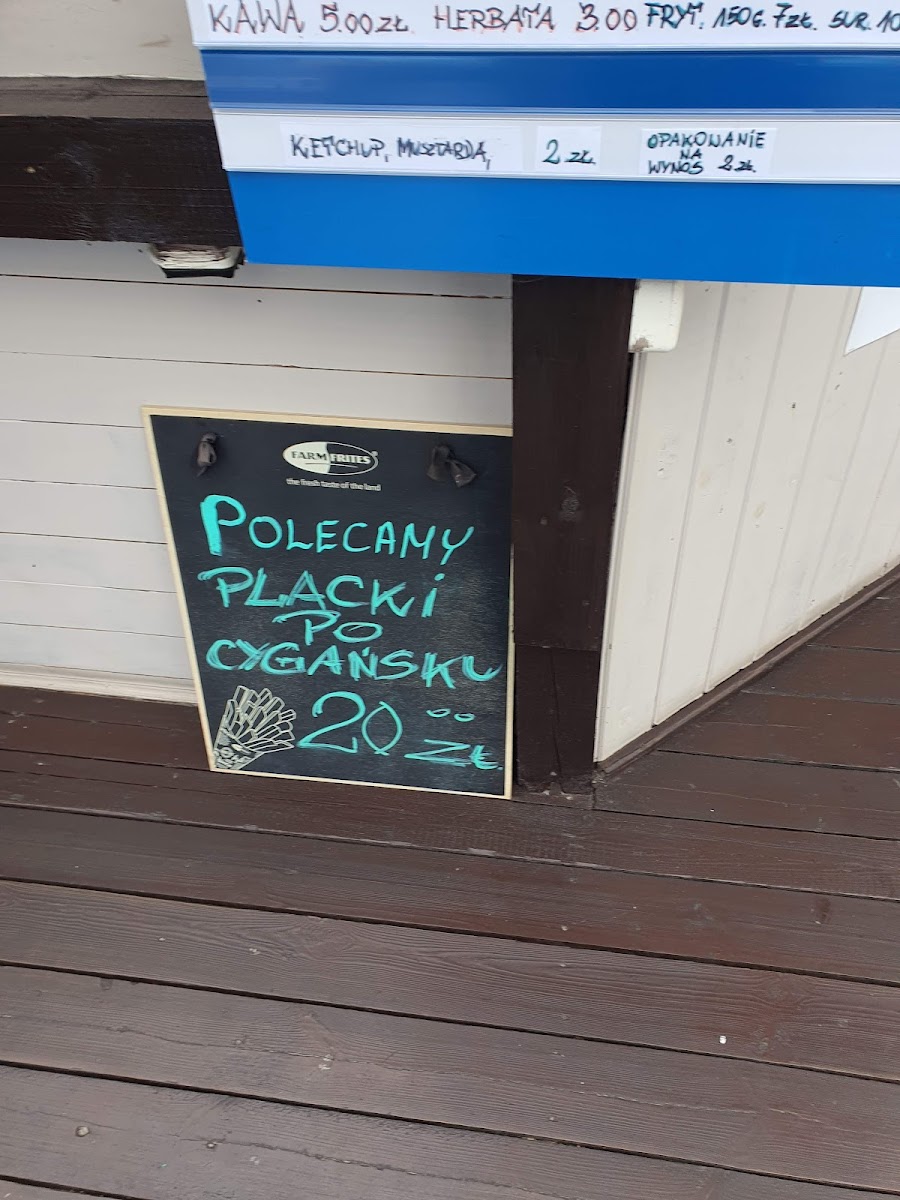 KAWA 5.00 zł. HERBATA 3.00 FRYT. 150G. 7zł. SUR. 10
KETCHUP, MUSZTARDA, 2 zł. OPAKOWANIE
NA
WYNOS 2 zł.
FARM FRITES
the fresh taste of the land
POLECAMY
PLACKi
PO
CYGAŃSKU
20 00 zł.